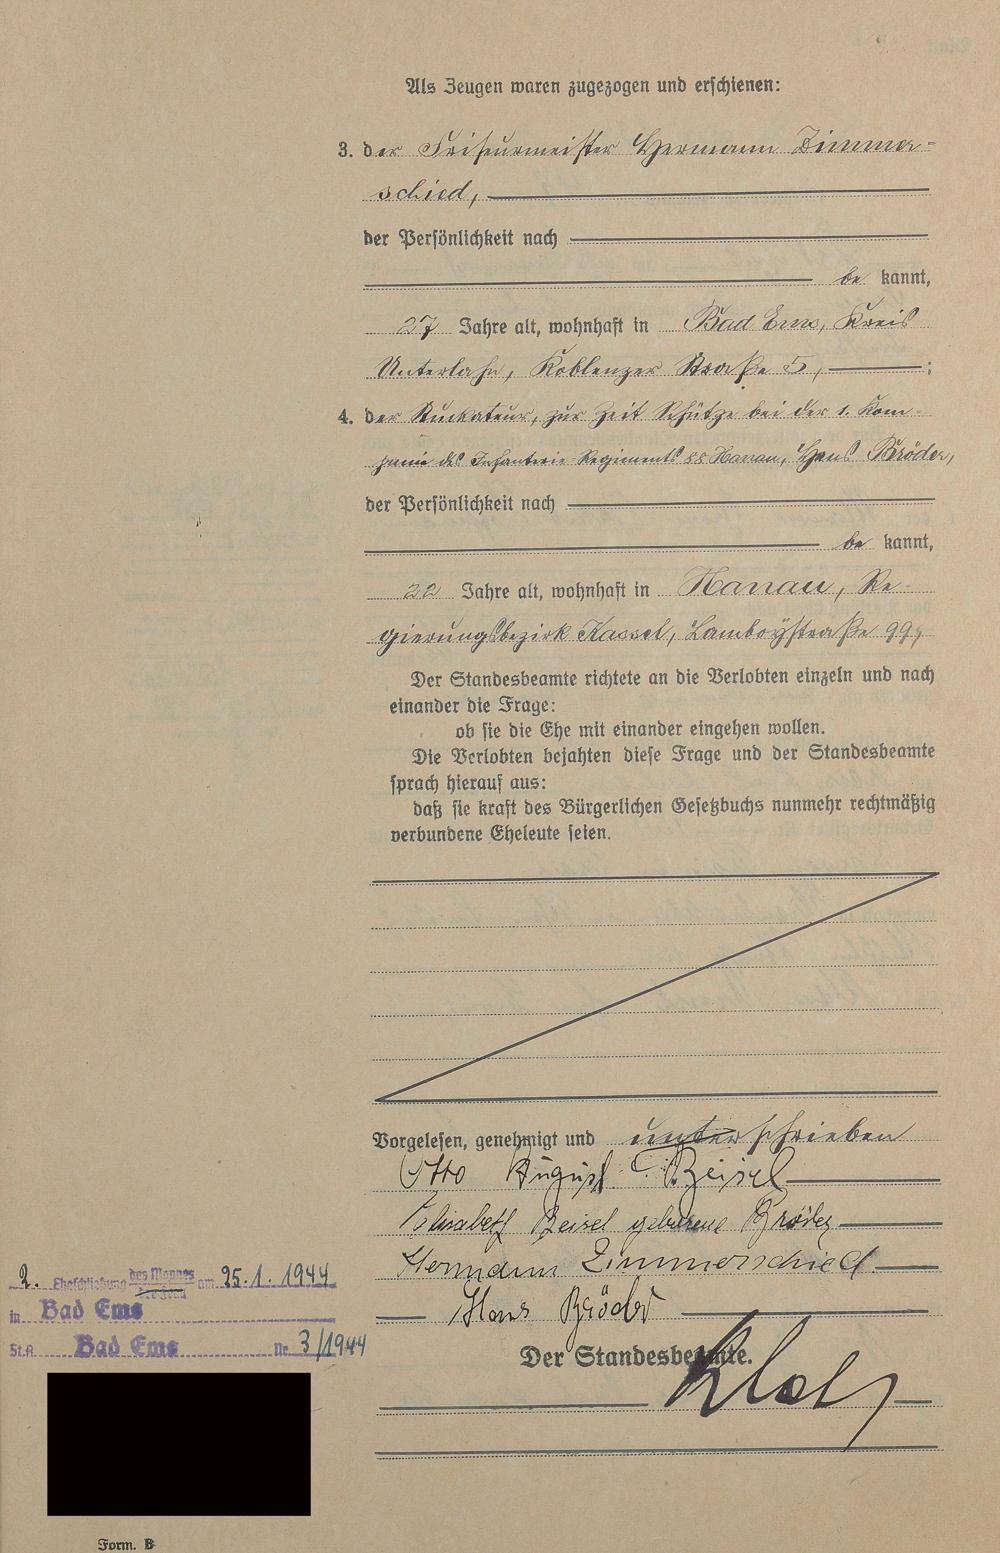 Als Zeugen waren zugezogen und erschienen:
3. der Friseurmeister Hermann Zimmer-
schied,
der Persönlichkeit nach
be kannt,
27 Jahre alt, wohnhaft in Bad Ems, Kreis
Unterlahn, Koblenzer Straße 5, ;
4. der Stukateur, zur Zeit Schütze bei der 1. Kom-
panie des Infanterie-Regiments 88 Hanau, Hans Bröder,
der Persönlichkeit nach
be kannt,
22 Jahre alt, wohnhaft in Hanau, Re-
gierungsbezirk Kassel, Lamboystraße 99,
Der Standesbeamte richtete an die Verlobten einzeln und nach
einander die Frage:
ob sie die Ehe mit einander eingehen wollen.
Die Verlobten bejahten diese Frage und der Standesbeamte
sprach hierauf aus:
daß sie kraft des Bürgerlichen Gesetzbuchs nunmehr rechtmäßig
verbundene Eheleute seien.
Vorgelesen, genehmigt und unterschrieben
Otto August Beisel
Elisabeth Beisel geborene Bröder
Hermann Zimmerschied
Hans Bröder
Der Standesbeamte.
2. Eheschließung des Mannes der Frau am 25.1.1944
in Bad Ems
St.A. Bad Ems Nr. 3/1944
Form. B